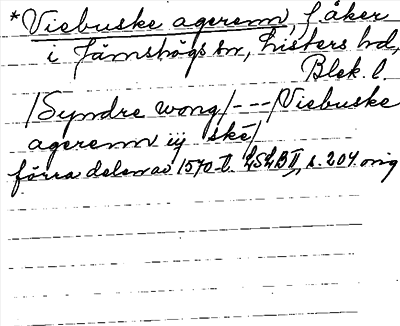 *Viebuske agerenn, f åker
i Jämshögs sn, Listers hd,
Blek. l.
/Syndre wong/---/Viebuske
agerenn iij ske/
förra delen av 1570-t. LSLB II, s. 204. orig